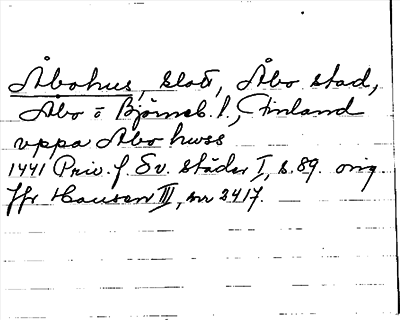 Åbohus, slott, Åbo stad,
Åbo o Björneb. l., Finland
uppa Åbo hwss
1441 Priv. f. Sv. städer I, s. 89. orig.
Jfr Hausen III, nr 2417.